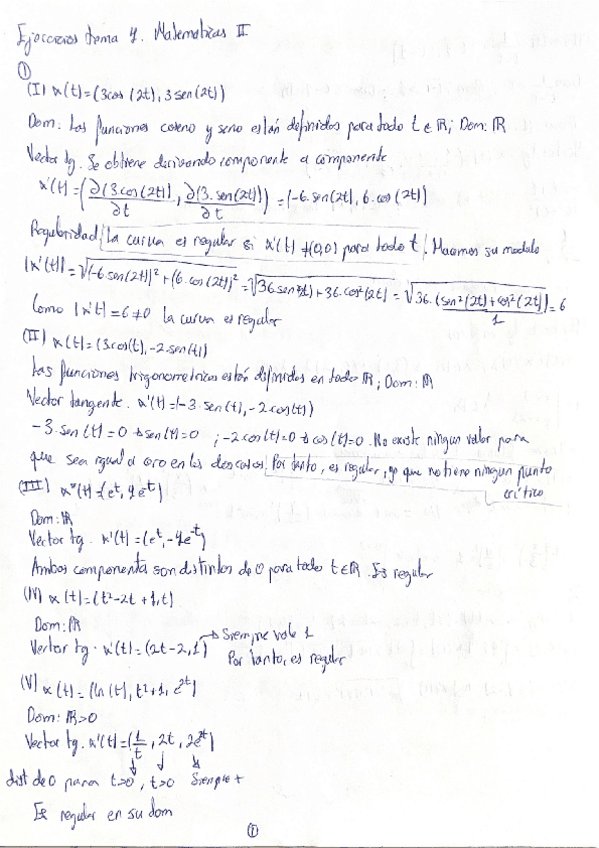 Ejercicios tema 7. Matemáticas II
①
(I) α(t)=(3cos(2t), 3sen(2t))
Dom: Las funciones coseno y seno están definidos para todo t ∈ ℝ; Dom: ℝ
Vector tg. Se obtiene derivando componente a componente
α'(t)=(∂(3cos(2t))/∂t, ∂(3.sen(2t))/∂t) = (-6.sen(2t), 6.cos(2t))
Regularidad: La curva es regular si α'(t)≠(0,0) para todo t. Hacemos su modulo
|α'(t)|=√(-6.sen(2t))²+(6.cos(2t))² = √36sen²(2t)+36.cos²(2t) = √36.(sen²(2t)+cos²(2t)) = 6
1
Como |α'(t)|=6≠0 la curva es regular
(II) α(t)=(3cos(t),-2.sen(t))
Las funciones trigonometricas están definidos en todo ℝ; Dom: ℝ
Vector tangente. α'(t)=(-3.sen(t),-2cos(t))
-3.sen(t)=0 → sen(t)=0 ; -2cos(t)=0 → cos(t)=0. No existe ningun valor para
que sea igual a cero en los dos casos. Por tanto, es regular, ya que no tiene ningun punto
crítico
(III) α(t)=(eᵗ, 4e⁻ᵗ)
Dom: ℝ
Vector tg. α'(t)=(eᵗ,-4e⁻ᵗ)
Ambos componentes son distintos de 0 para todo t∈ℝ. Es regular
(IV) α(t)=(t²-2t+1,t)
Dom: ℝ
Vector tg. α'(t)=(2t-2,1) → Siempre vale 1
Por tanto, es regular
(V) α(t)=(ln(t), t²+1, e²ᵗ)
Dom: ℝ>0
Vector tg. α'(t)=(1/t, 2t, 2e²ᵗ)
dist de 0 para t>0, t>0 Siempre +
Es regular en su dom
①